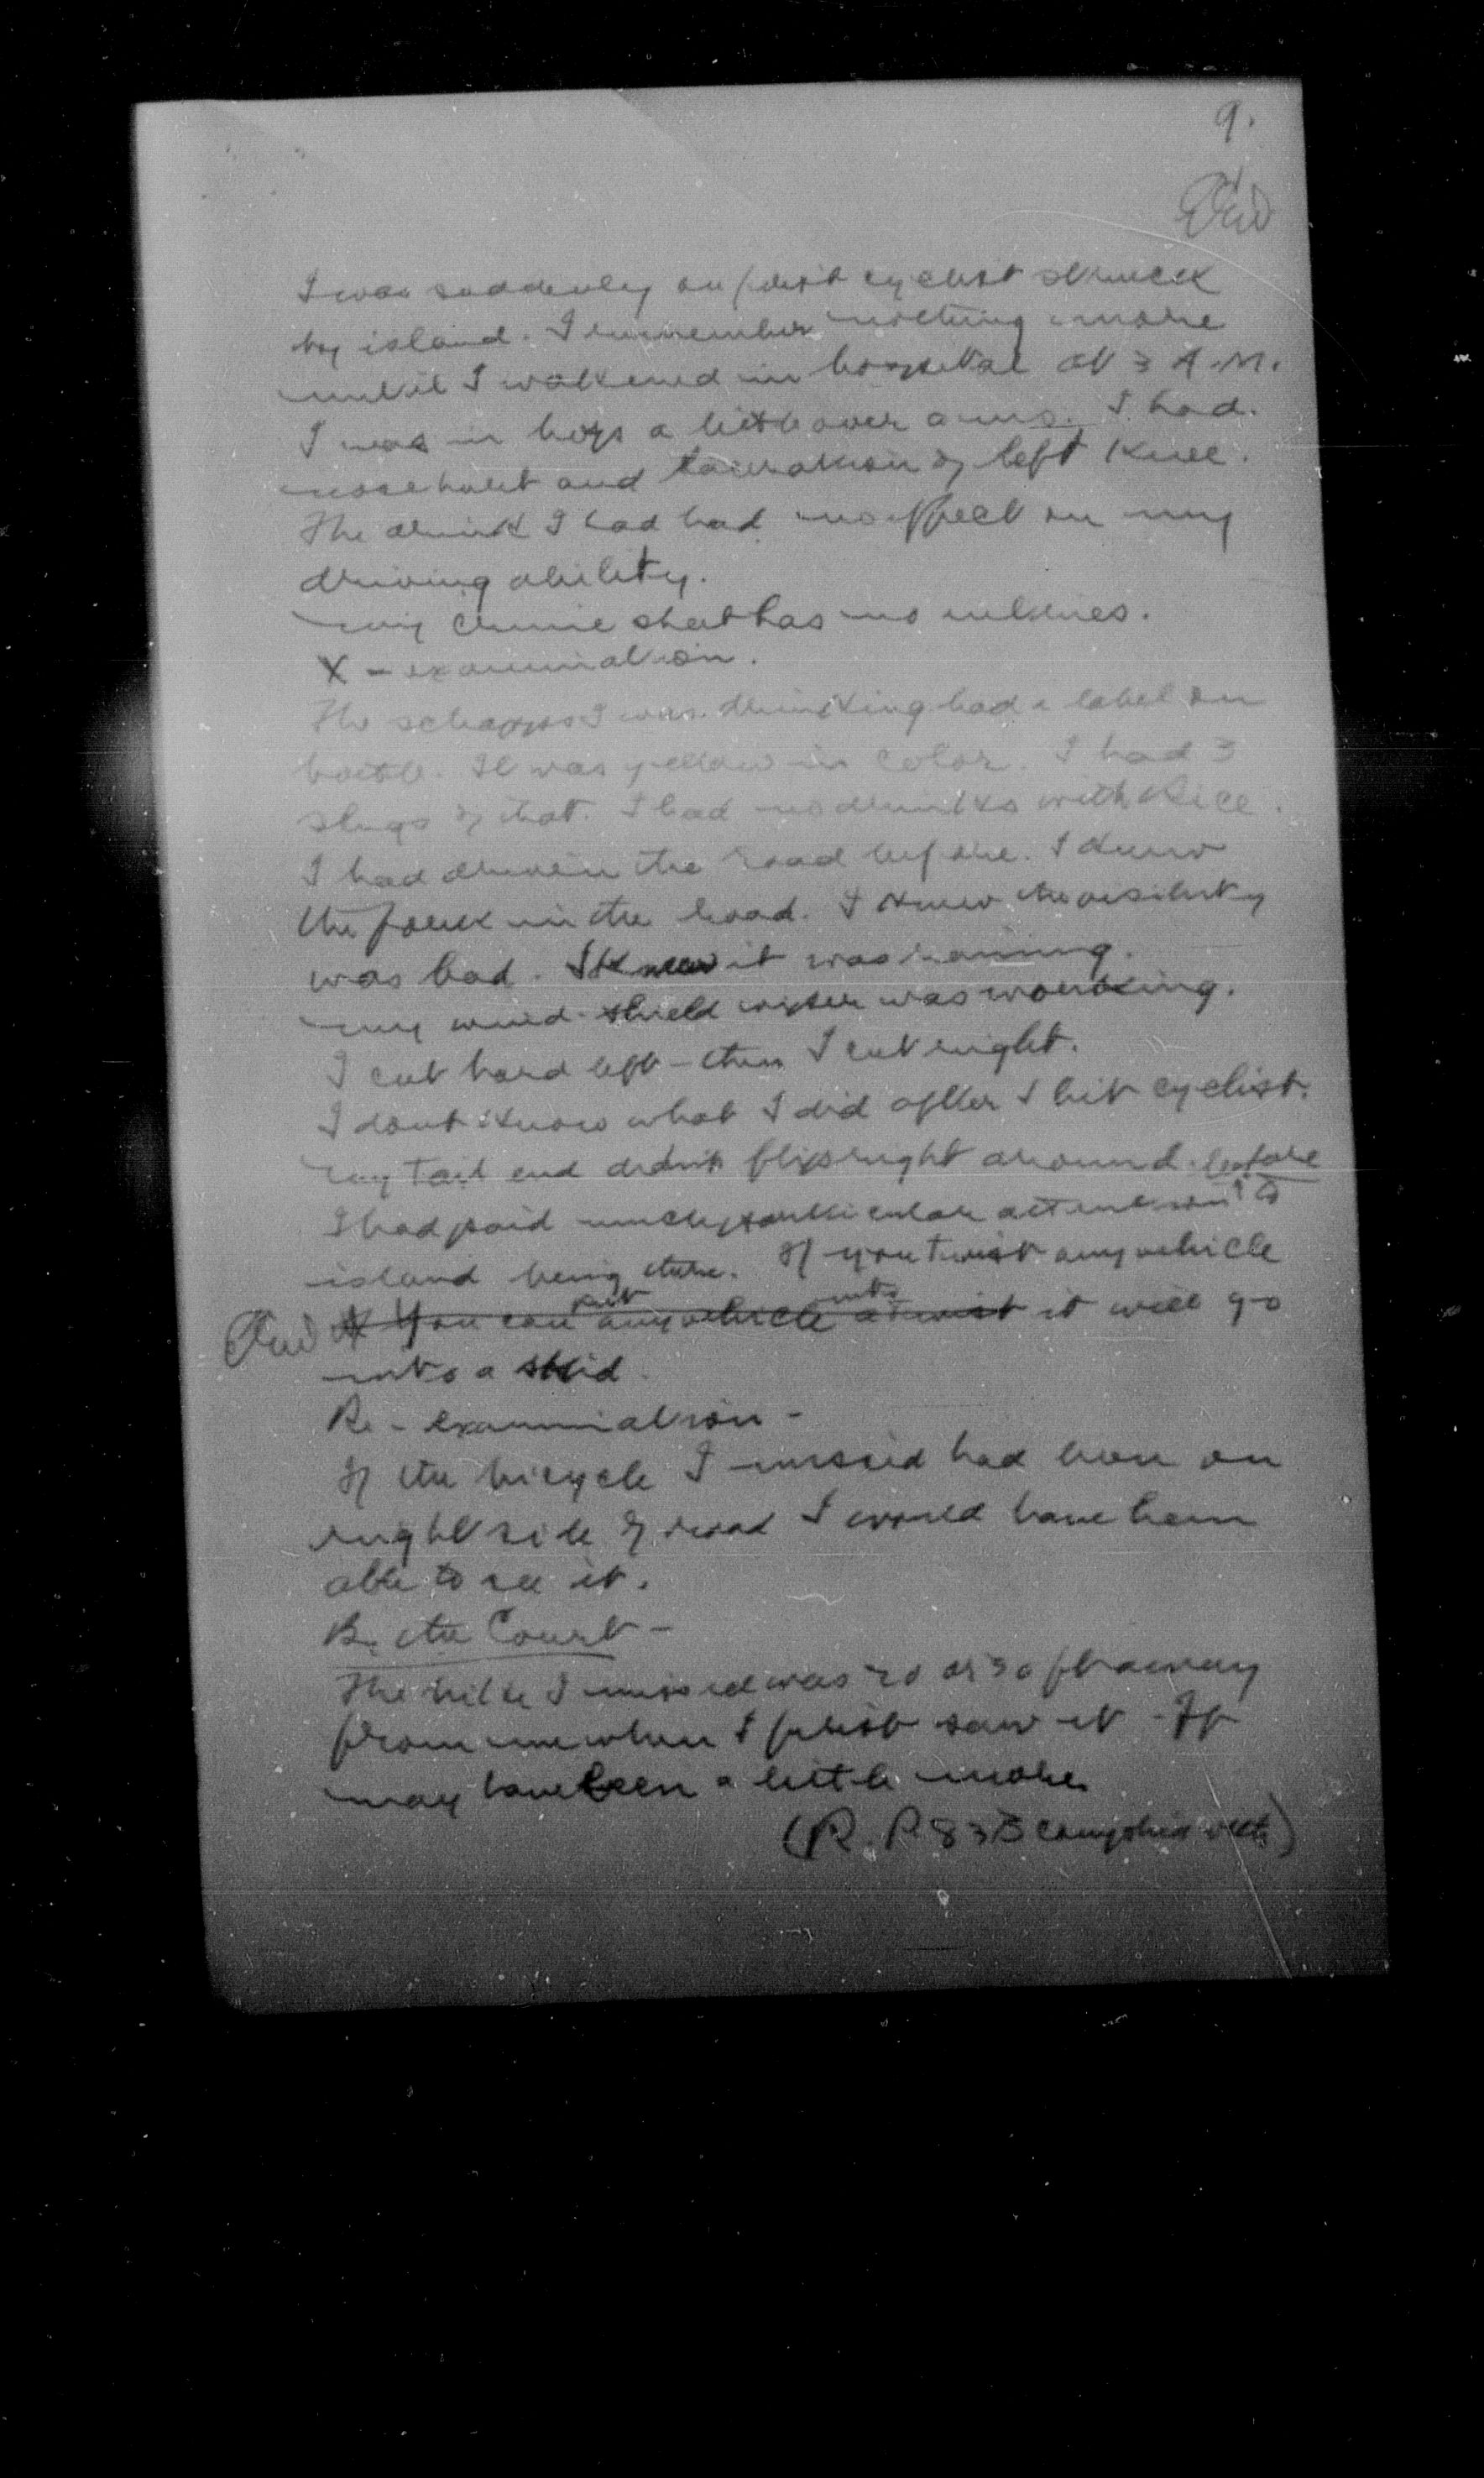 9.
I was suddenly on first cyclist struck
by island. I remember nothing more
until I wakened in hospital at 3 A.M.
I was in hosp a little over a mo. I had
nose hurt and laceration of left knee.
The drink I had had no effect on my
driving ability.
My crime sheet has no entries.
X - examination.
The schapps I was drinking had a label on
bottle. It was yellow in color. I had 3
slugs of that. I had no drinks with Rice.
I had driven the road before. I knew
the fork in the road. I knew the visibility
was bad. I knew it was raining.
My wind-shield wiper was working.
I cut hard left - then I cut right.
I dont know what I did after I hit cyclist.
My tail end didnt flip right around. before
I had paid much particular attention to
island being there. If you twist any vehicle
You can put any vehicle into a twist it will go
into a skid.
Re - examination -
If the bicycle I missed had been on
right side of road I would have been
able to see it.
By the Court -
The bike I missed was 20 or 30 ft away
from me when I first saw it. It
may have been a little more
(R.P. 83 B complied with)